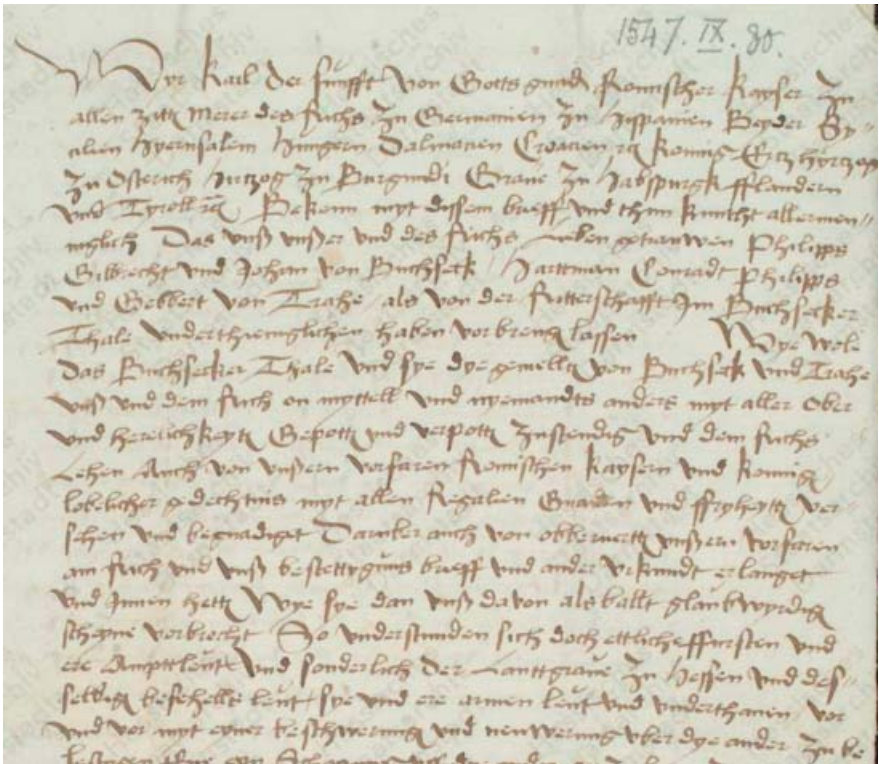 1547. IX. 30.
Wyr Karl der funfft von Gotts gnadn Romischer Kayser zu
allen zittn Merer des Richs zu Germanien zu Hispanien Beyder Sy-
cilien Hyerusalem Hungern Dalmatien Croatien rc Konnig Ertzhertzog
zu Osterich Hertzog zu Burgundi Grave zu Habspurgk Fflandern
und Tyroll rc Bekenn myt dissem brieff und thun kuntht allermen-
niglich Das unß unßer und des Richs Lieben getrauwen Philipps
Gilbrecht und Johan von BuchseckHarttman Conradt Philipps
und Gebbert von Trahe als von der Ritterschafft Im Buchsecker
Thale underthieniglichen haben vorbrengn lassen Wye wole
das Buchsecker Thale und sye dye gemelltn von Buchseck und Trahe
unß und dem Rich on myttell und nyemandts anders myt aller Ober
und herrlichkeytn Gepottn und verpottn zustendig und dem Richs
Lehen Auch von unßern vorfaren Romischen Kaysern und Konnign
lobelicher gedechtnis myt allen Regalien Gnaden und ffryheytn ver-
sehen und begnadiget Daruber auch von obberuertn unßern vorfaren
am Rich und unß bestettygung brieff und ander urkundt erlanget
und Innen hettn Wye sye dan unß davon als ballt glaubwyrdign
scheyne vorbrocht So understunden sich doch ettliche ffursten und
ere Amptleut und sonderlich der Lanttgrave zu Hessen und des-
selbign befehells leut sye und ere armen leut und underthanen vor
und vor myt eyner beschwerung und neuwerung uber dye ander zu be